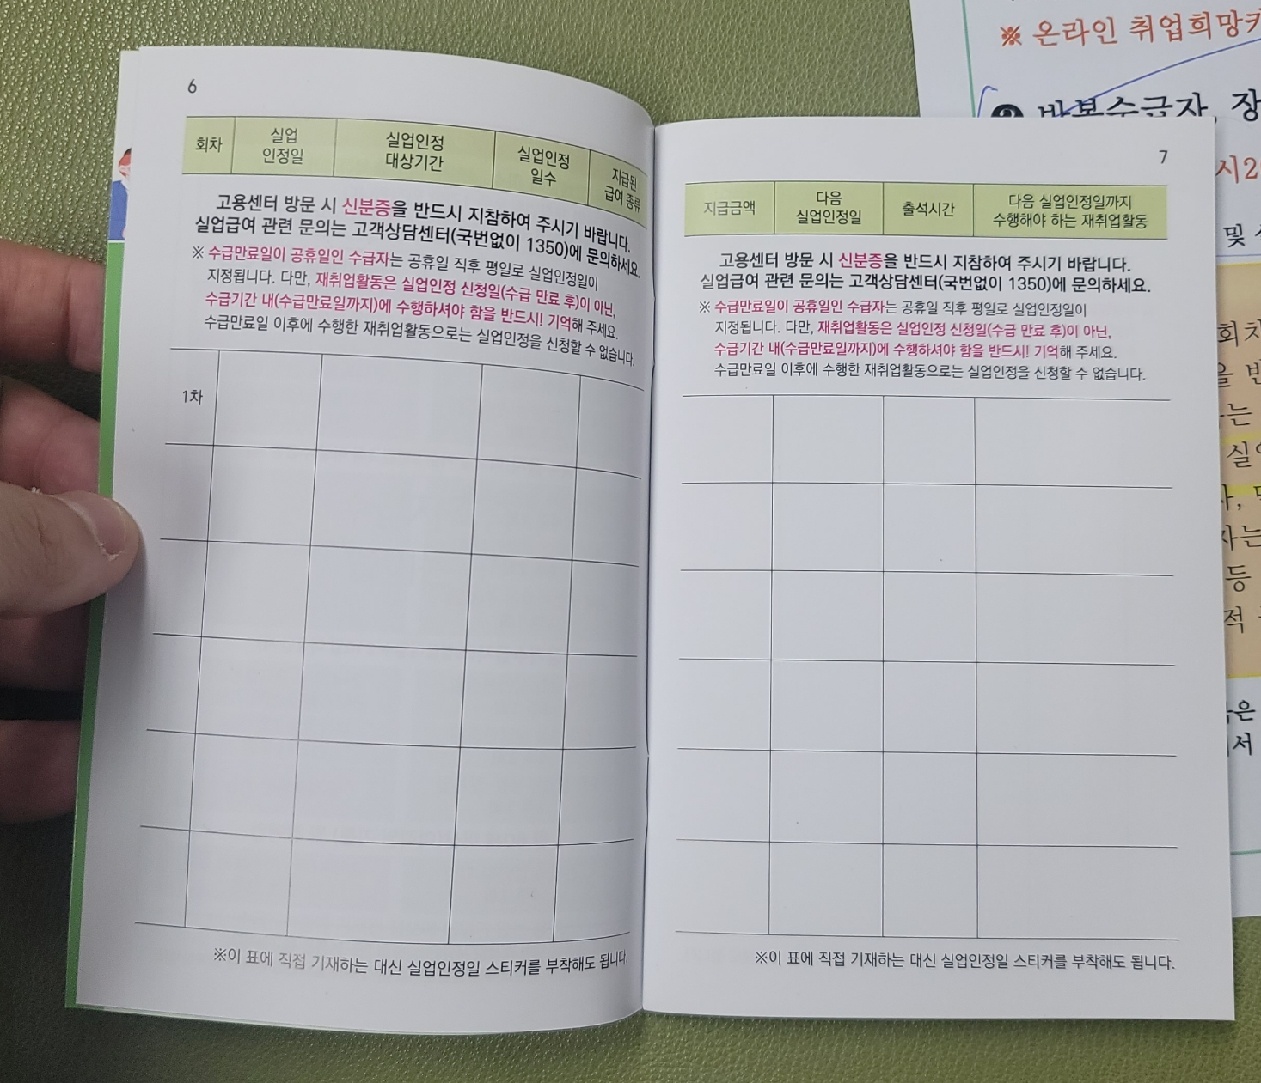 6
회차
실업
인정일
실업인정
대상기간
실업인정
일수
지급된
급여 종류
고용센터 방문 시 신분증을 반드시 지참하여 주시기 바랍니다.
실업급여 관련 문의는 고객상담센터(국번없이 1350)에 문의하세요.
※ 수급만료일이 공휴일인 수급자는 공휴일 직후 평일로 실업인정일이
지정됩니다. 다만, 재취업활동은 실업인정 신청일(수급 만료 후)이 아닌,
수급기간 내(수급만료일까지)에 수행하셔야 함을 반드시! 기억해 주세요.
수급만료일 이후에 수행한 재취업활동으로는 실업인정을 신청할 수 없습니다.
1차
※이 표에 직접 기재하는 대신 실업인정일 스티커를 부착해도 됩니다
7
지급금액
다음
실업인정일
출석시간
다음 실업인정일까지
수행해야 하는 재취업활동
고용센터 방문 시 신분증을 반드시 지참하여 주시기 바랍니다.
실업급여 관련 문의는 고객상담센터(국번없이 1350)에 문의하세요.
※ 수급만료일이 공휴일인 수급자는 공휴일 직후 평일로 실업인정일이
지정됩니다. 다만, 재취업활동은 실업인정 신청일(수급 만료 후)이 아닌,
수급기간 내(수급만료일까지)에 수행하셔야 함을 반드시! 기억해 주세요.
수급만료일 이후에 수행한 재취업활동으로는 실업인정을 신청할 수 없습니다.
※이 표에 직접 기재하는 대신 실업인정일 스티커를 부착해도 됩니다.
※ 온라인 취업희망카
반복수급자, 장
시2
및
회차
을 반
는
실업
자는
등
적
은
서